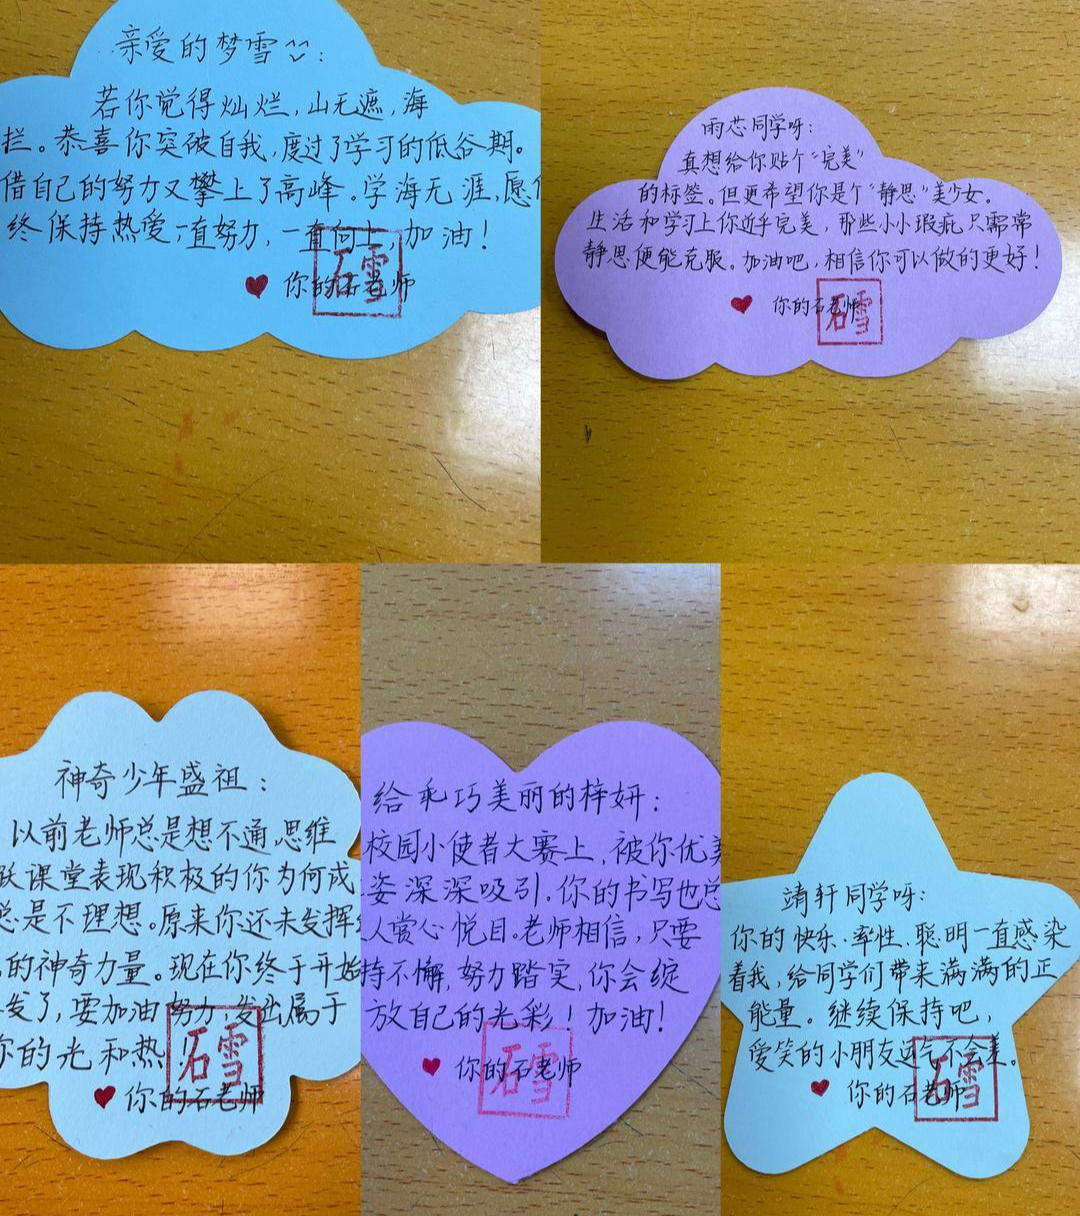 亲爱的梦雪^^:
若你觉得灿烂,山无遮,海
拦。恭喜你突破自我,度过了学习的低谷期。
借自己的努力又攀上了高峰。学海无涯,愿
终保持热爱,一直努力,一直向上,加油!
你的石老师
石雪
雨芯同学呀:
真想给你贴个“完美”
的标签。但更希望你是个“静思”美少女。
生活和学习上你近乎完美,那些小小瑕疵只需常
静思便能克服。加油吧,相信你可以做的更好!
你的石老师
石雪
神奇少年盛祖:
以前老师总是想不通,思维
跃课堂表现积极的你为何成
总是不理想。原来你还未发挥
的神奇力量。现在你终于开始
发了,要加油努力,发出属于
你的光和热
你的石老师
石雪
给乖巧美丽的梓妍:
校园小使者大赛上,被你优美
姿深深吸引。你的书写也总
人赏心悦目。老师相信,只要
持不懈,努力踏实,你会绽
放自己的光彩!加油!
你的石老师
石雪
靖轩同学呀:
你的快乐、率性、聪明一直感染
着我,给同学们带来满满的正
能量。继续保持吧,
爱笑的小朋友运气不会差。
你的石老师
石雪